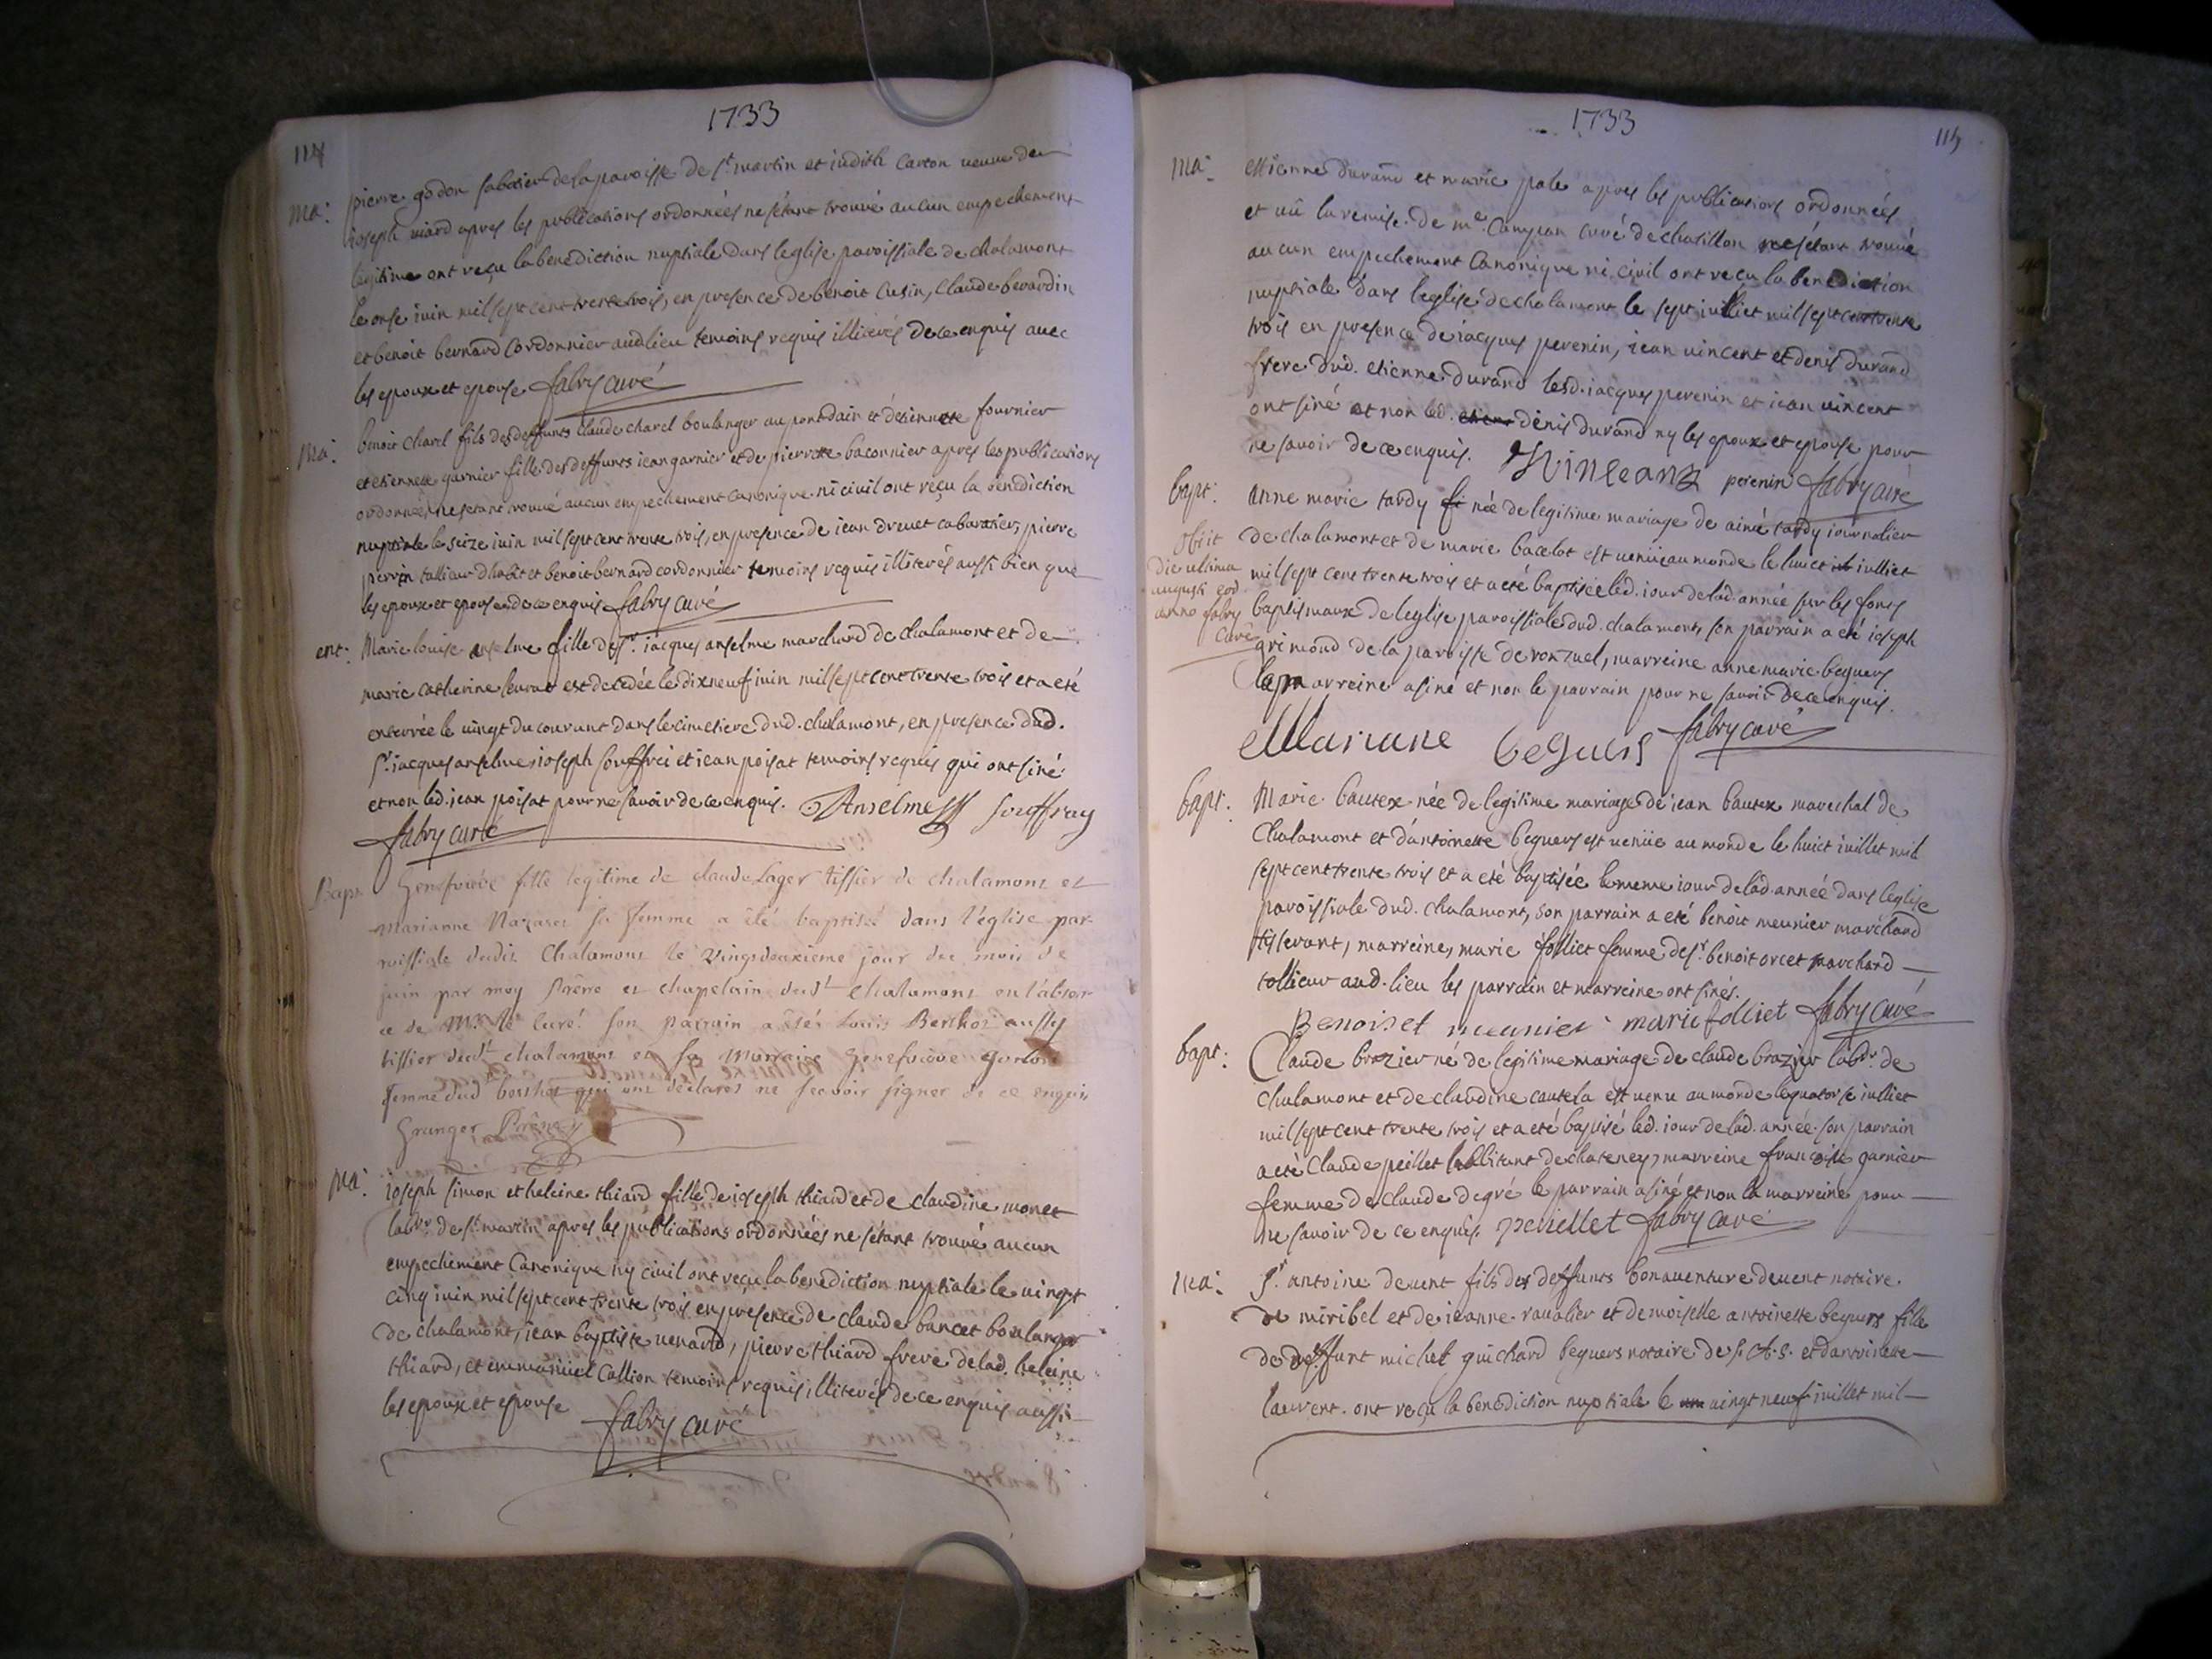 1733
114
ma: pierre godon sabotier de la paroisse de st martin et iudith carton veuve de
ioseph viard apres les publications ordonnées ne sétant trouvé aucun empechement
legitime ont reçu la benediction nuptiale dans leglise paroissiale de chalamont
le onse iuin mil sept cent trente trois, en presence de benoit cusin, claude berardin
et benoit bernard cordonnier aud lieu temoins requis illiterés de ce enquis avec
les epoux et epouse fabry curé
ma: benoit charel fils des deffunts claude charel boulanger au pont dain et détiennette fournier
et etiennette garnier fille des deffunts iean garnier et de pierrette baconnier apres les publications
ordonnées ne sétant trouvé aucun empechement canonique ni civil ont reçu la benediction
nuptiale le seize iuin mil sept cent trente trois, en presence de iean drevet cabaratier, pierre
perrin tallieur dhabit et benoit bernard cordonnier temoins requis illiterés aussi bien que
les epoux et epouse de ce enquis fabry curé
ent: Marie louise anselme fille de sr. iacques anselme marchand de chalamont et de
marie catherine seurat est decedée le dixneuf iuin mil sept cent trente trois et a eté
enterrée le vingt du courant dans le cimetiere dud. chalamont, en presence dud.
sr. iacques anselme, ioseph souffrei et iean poisat temoins requis qui ont siné
et non led. iean poisat pour ne savoir de ce enquis. Anselme souffray
fabry curé
Bapt Genefvieve fille legitime de claude Lager tissier de chalamont et
marianne Nazaret sa femme a été baptisé dans l'église par
roissiale dudit Chalamont le vingt deuxieme jour du mois de
juin par moy Prêtre et chapelain dudt chalamont en l'absen
ce de Mr. le curé. son parrain a étés Louis Berthot aussy
tissier dudt chalamont et sa Marraine genefvieve
femme dud berthot qui ont déclarés ne scavoir signer de ce enquis
Granger Prêtre
ma: ioseph simon et heleine thiard fille de ioseph thiard et de claudine monet
labr. de st. martin apres les publications ordonnées ne sétant trouvé aucun
empechement canonique ny civil ont reçu la benediction nuptiale le vingt
cinq iuin mil sept cent trente trois en presence de claude bancet boulanger
de chalamont, iean baptiste venard, pierre thiard frere de lad. heleine
thiard, et emmanuel callion temoins requis illiterés de ce enquis aussi
les epoux et epouse fabry curé
1733
115
ma: ettienne durand et marie pale apres les publications ordonnées
et vû la remise de mre. curé de chatillon ne sétant trouvé
aucun empechement canonique ni civil ont reçu la benediction
nuptiale dans leglise de chalamont le sept iulliet mil sept cent trente
trois en presence de iacques perenin, iean vincent et denis durand
frere dud. etienne durand lesd. iacques perenin et iean vincent
ont siné et non led. denis durand ny les epoux et epouse pour
ne savoir de ce enquis. perenin fabry curé
bapt: anne marie tardy née de legitime mariage de aimé tardy iournalier
de chalamont et de marie bacelot est venüe au monde le huict iulliet
mil sept cent trente trois et a eté baptisée led. iour de lad. année sur les fonts
baptismaux de leglise paroissiale dud. chalamont, son parrain a eté ioseph
grimond de la paroisse de ronzuel, marreine anne marie beguers
la marreine a siné et non le parrain pour ne savoir de ce enquis.
obiit
die ultima
augusti eod
anno fabry
curé
Mariane beguers fabry curé
bapt: Marie bautex née de legitime mariage de iean bautex marechal de
chalamont et d'antoinette beguers est venüe au monde le huict iuillet mil
sept cent trente trois et a eté baptisée le meme iour de lad. année dans leglise
paroissiale dud. chalamont, son parrain a eté benoit meunier marchand
tisserant, marreine, marie folliet femme de sr. benoit orcet marchand
tollieur aud. lieu les parrain et marreine ont sinés.
Benoist meunier marie folliet fabry curé
bapt: Claude brazier né de legitime mariage de claude brazier labr. de
chalamont et de claudine cautela est venu au monde le quatorse iulliet
mil sept cent trente trois et a eté baptisé led. iour de lad. année. son parrain
a eté claude peillet habitant de chateney, marreine francoise garnier
femme de claude degré le parrain a siné et non la marreine pour
ne savoir de ce enquis. peillet fabry curé
ma: sr. antoine devent fils des deffunts bonaventure devent notaire
de miribel et de ieanne ravalier et demoiselle antoinette beguers fille
de deffunt michel guichard beguers notaire de s. A. S. et dantoinette
laurent. ont reçu la benediction nuptiale le vingt neuf iuillet mil